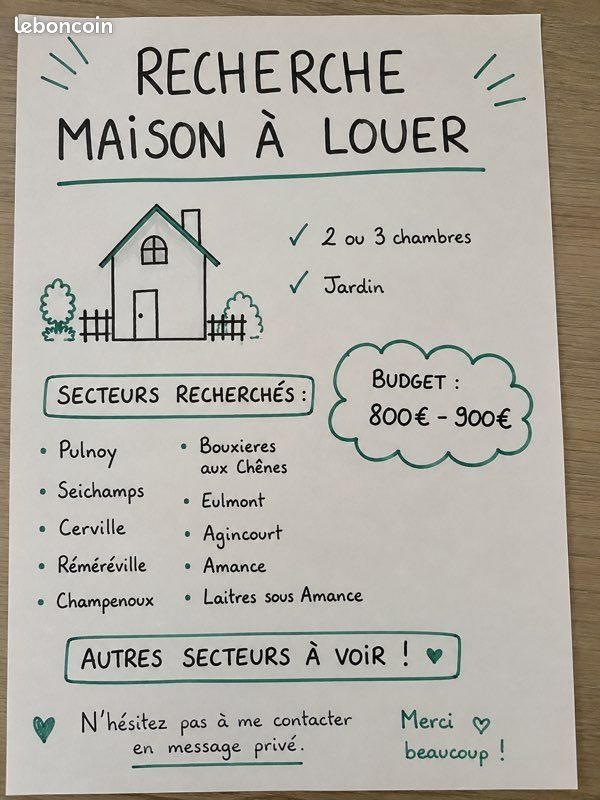 leboncoin
RECHERCHE
MAiSON À LOUER
✓ 2 ou 3 chambres
✓ Jardin
BUDGET :
800€ - 900€
SECTEURS RECHERCHÉS :
• Pulnoy
• Seichamps
• Cerville
• Réméréville
• Champenoux
• Bouxieres
aux Chênes
• Eulmont
• Agincourt
• Amance
• Laitres sous Amance
AUTRES SECTEURS À VOiR ! ♥
N'hésitez pas à me contacter
en message privé.
Merci ♡
beaucoup !